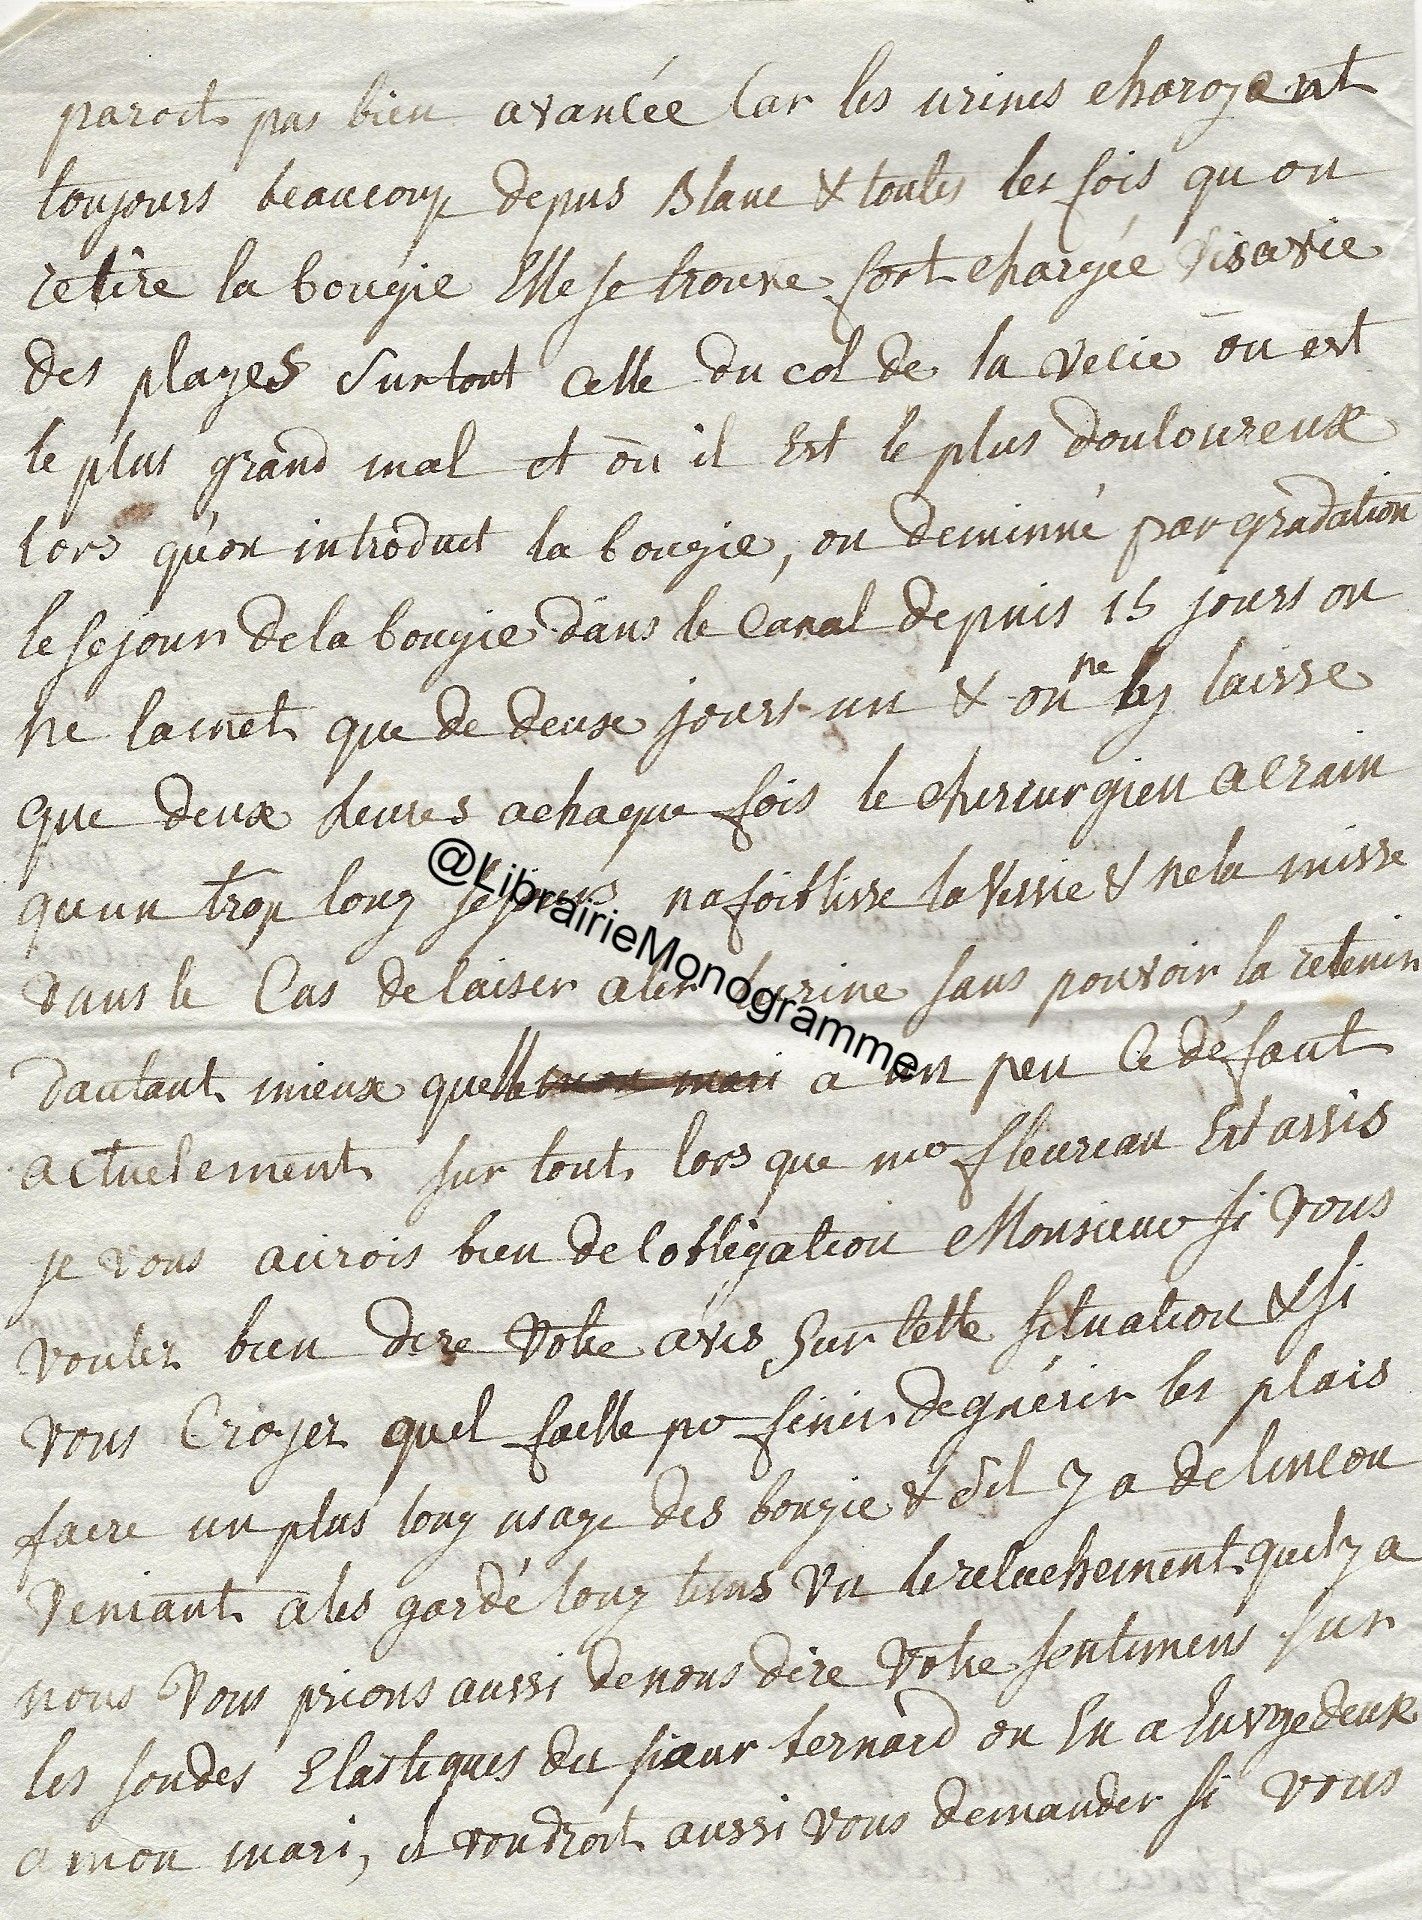 paroit pas bien avancée Car les urines charoyent
toujours beaucoup depus Blanc & toutes les fois qu on
retire la bougie Elle se trouve fort chargée visavie
des playes surtout celle du col de la vecie ou est
le plus grand mal et ou il Est le plus douloureux
lors qu'on introduit la bougie, on deminue par gradation
le sejour de la bougie dans le Canal depuis 15 jours on
ne lamet que de deux jours un & on ne ly laisse
que deux heures achaque fois le chirurgien acraint
quun trop long sejour nafoiblisse la Vessie & ne la misse
dans le Cas de laiser aler lurine sans pouvoir la retenir
dautant mieux quelle a un peu Ce défaut
actuelement sur tout lors que mr fleureau Est assis
je vous aurois bien de lobligation Monsieur si vous
voulez bien dire votre avis Sur cette situation & si
vous Croyez quil faille pr finir de guérir les plais
faire un plus long usage des bougie & sil y a de lincon
veniant a les gardé long tems vu le relachement quil y a
nous vous prions aussi de nous dire votre sentimens sur
les sondes Elastiques du sieur bernard on En a Envoye deux
a mon mari, il voudroit aussi vous demander si vous
@LibrairieMonogramme